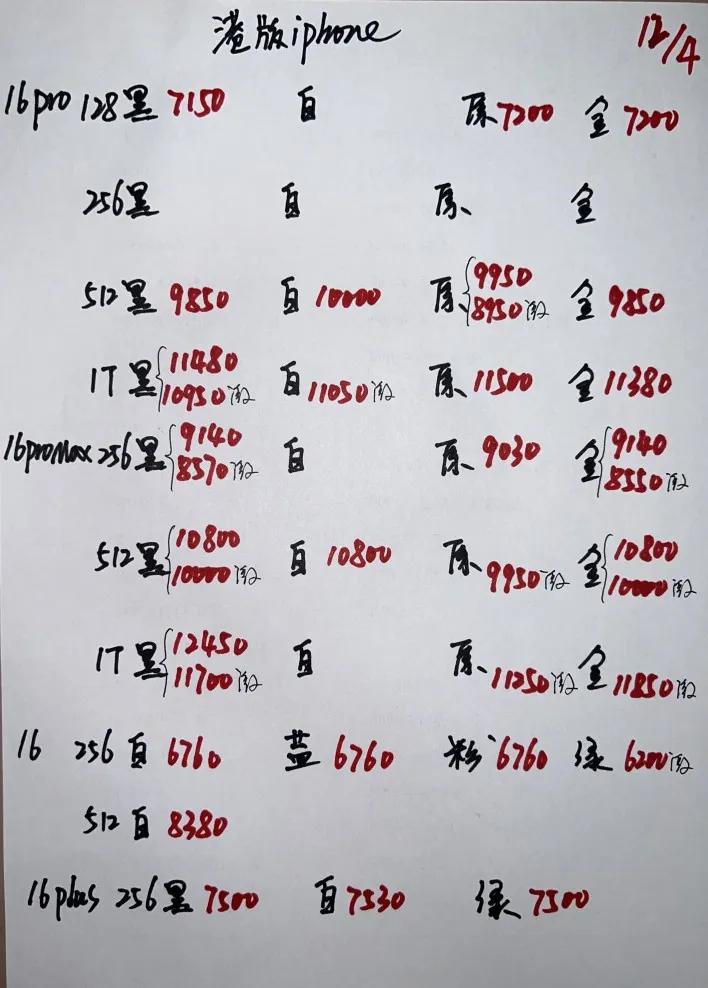 港版iphone 12/4
16pro 128黑 7150 白 原 7200 金 7200
256黑 白 原 金
512黑 9850 白 10000 原 9950 8950激 金 9850
1T 黑 11480 10950激 白 11050激 原 11500 金 11380
16proMax 256黑 9140 8570激 白 原 9030 金 9140 8550激
512黑 10800 10000激 白 10800 原 9950激 金 10800 10000激
1T 黑 12450 11700激 白 原 11250激 金 11850激
16 256 白 6760 蓝 6760 粉 6760 绿 6200激
512 白 8380
16plus 256黑 7500 白 7530 绿 7500